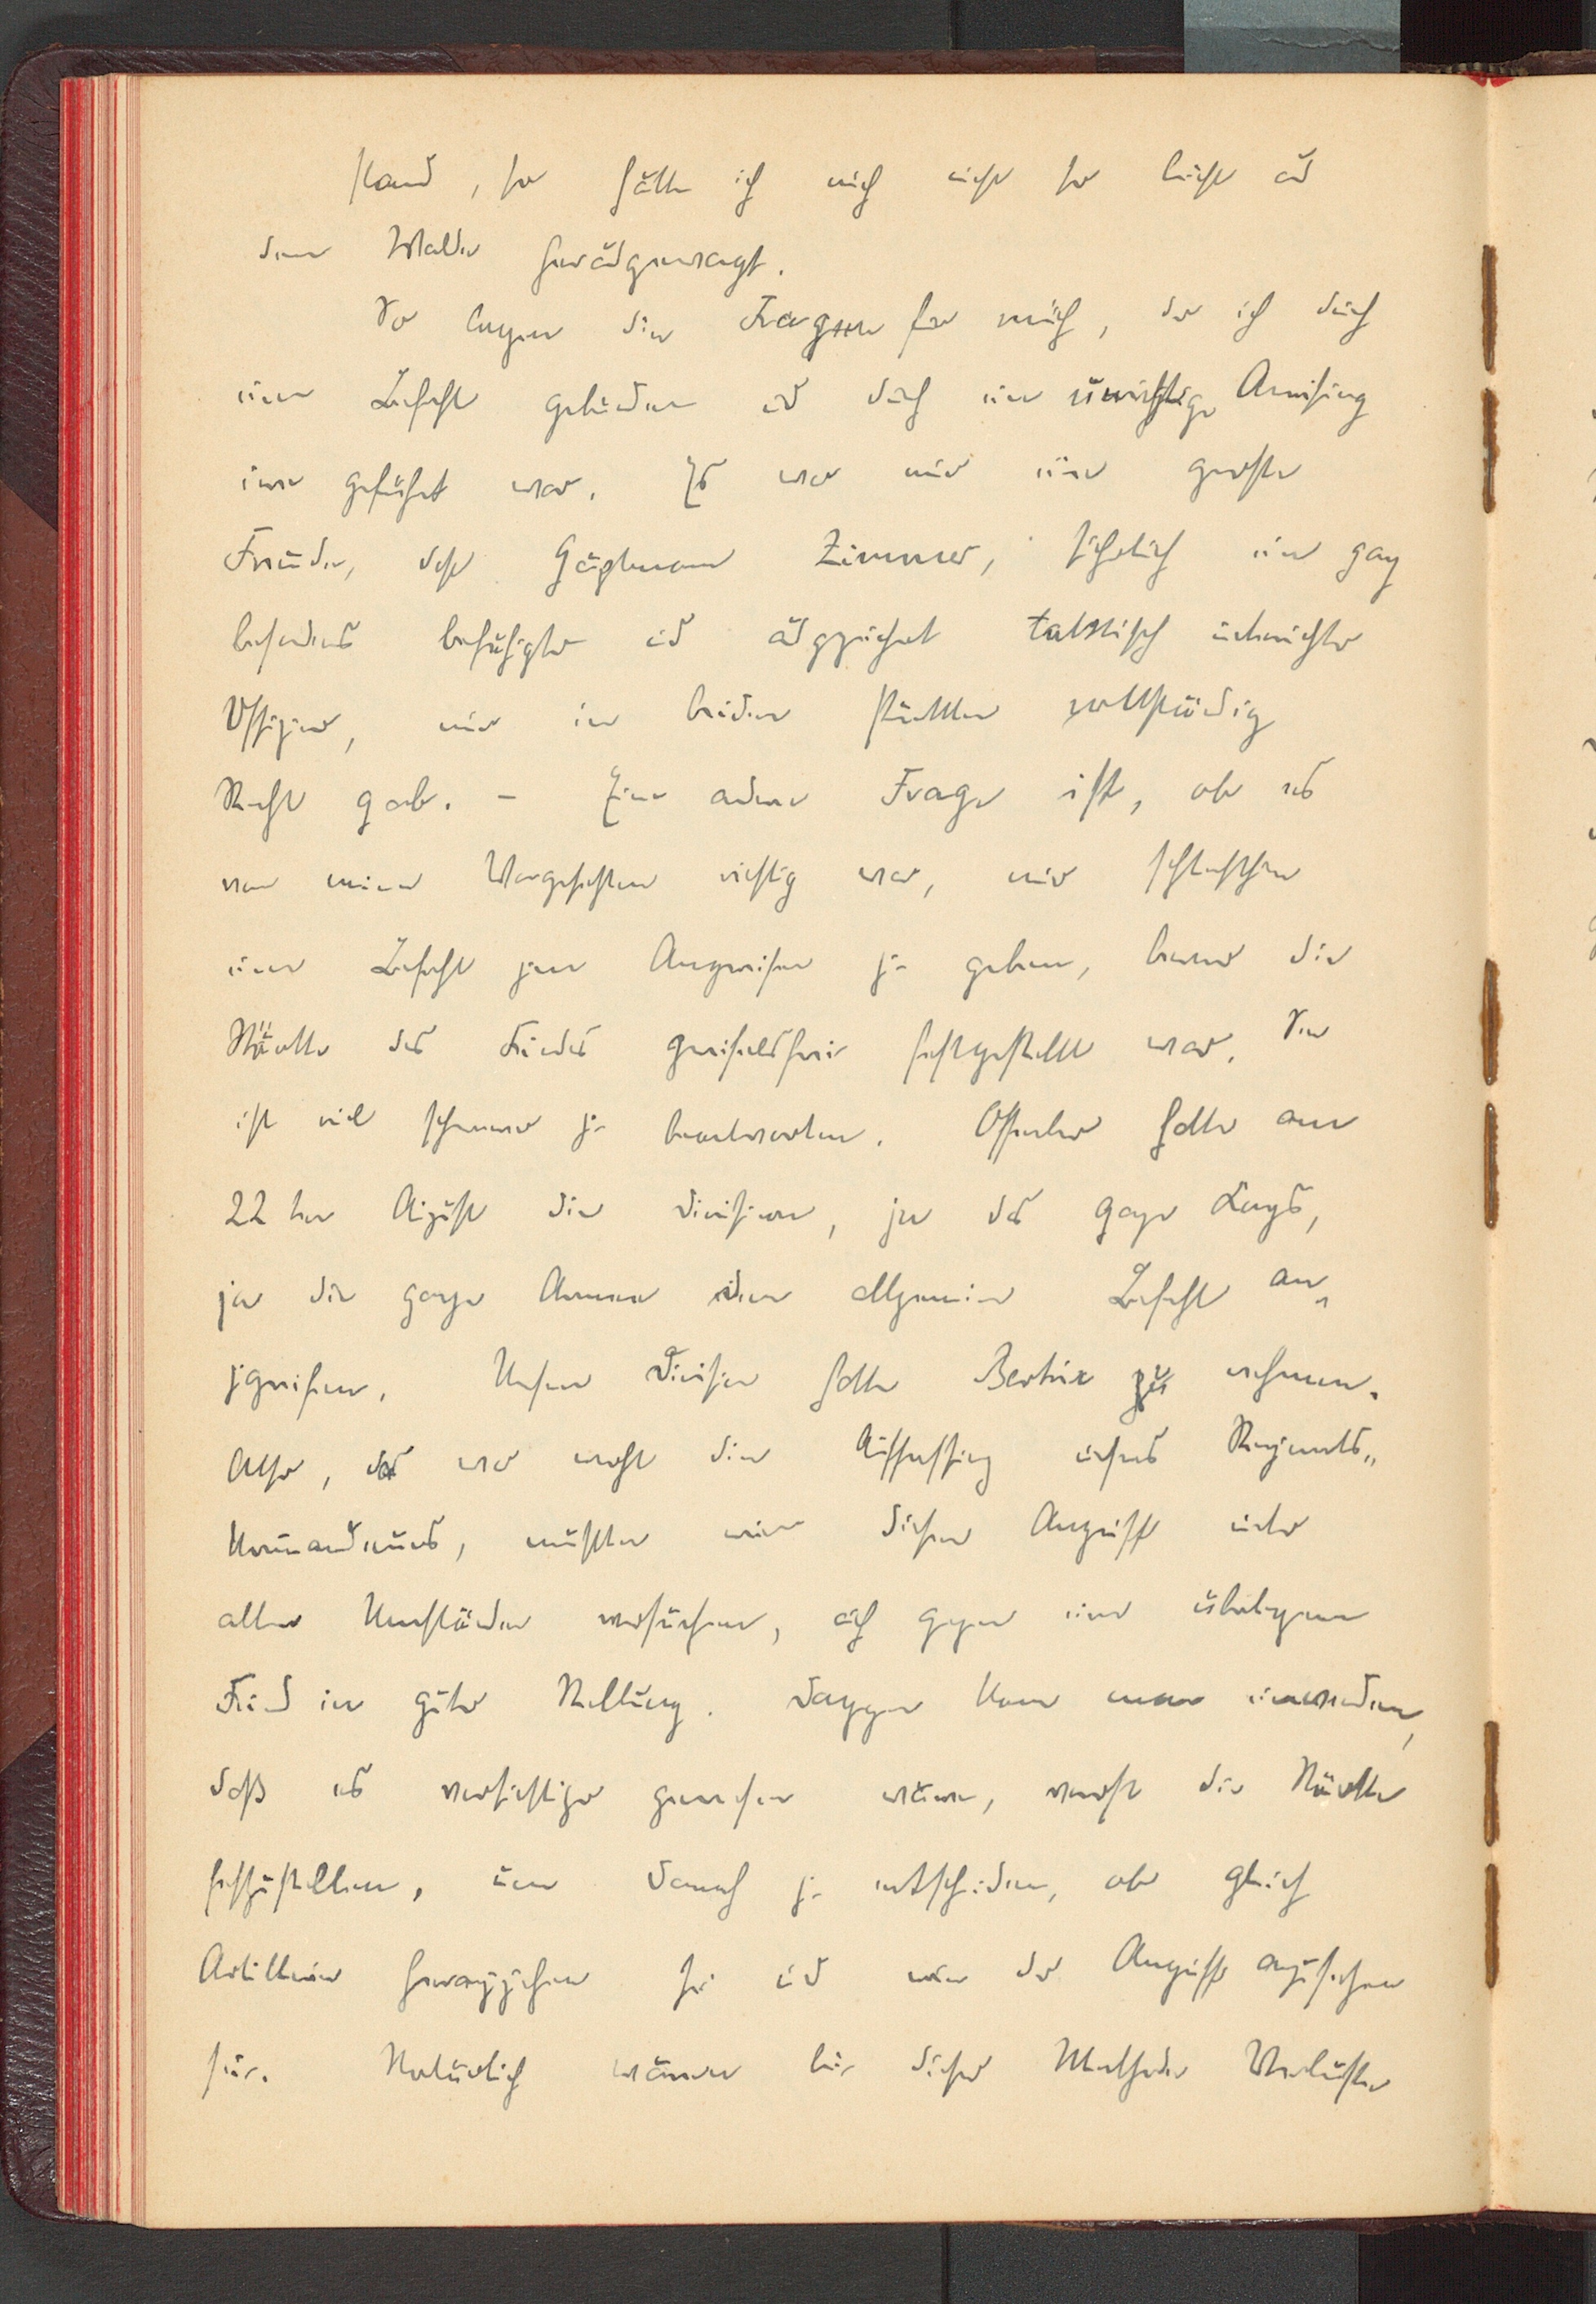 stand, so hätte ich mich nicht so leicht aus
dem Walde herausgewagt.
So lagen die Fragen für mich, der ich durch
einen Befehl gebunden und durch eine unrichtige Anweisung
irre geführt war. Es war mir eine große
Freude, daß Hauptmann Zimmer, sicherlich ein ganz
besonders befähigter und ausgezeichnet taktisch unterrichteter
Offizier, mir in beiden Punkten vollständig
Recht gab. – Eine andere Frage ist, ob es
von meinen Vorgesetzten richtig war, mir schlechthin
einen Befehl zum Angreifen zu geben, bevor die
Stärke des Feindes zweifelsfrei festgestellt war. Die
ist viel schwerer zu beantworten. Offenbar hatte am
22ten August die Division, ja das ganze Korps,
ja die ganze Armee den allgemeinen Befehl an-
zugreifen. Unsere Division hatte Bertrix zu nehmen.
Also, das war wohl die Auffassung unseres Regiments-
kommandeurs, mußten wir diesen Angriff unter
allen Umständen versuchen, auch gegen einen überlegenen
Feind in guter Stellung. Dagegen kann man einwenden,
daß es vorsichtiger gewesen wäre, vorerst die Stärke
festzustellen, um danach zu entscheiden, ob gleich
Artillerie heranzuziehen sei und wie der Angriff anzusetzen
sei. Natürlich wären bei dieser Methode Verluste